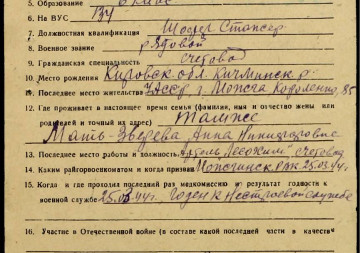 5. Образование 6 клас
6. № ВУС 134
7. Должностная квалификация Шофер Стажер
8. Военное звание рядовой
9. Гражданская специальность счетовод
10. Место рождения Кировск обл. Кичминск р.
11. Последнее место жительства УАССР г. Можга Короленко, 85
12. Где проживает в настоящее время семья (фамилия, имя и отчество жены или
родителей и точный их адрес) Там же
Мать-Зверева Анна Никандровна
13. Последнее место работы и должность Артель счетовод
14. Каким райгорвоенкоматом и когда призван Можгинск РВК 25.03.44г.
15. Когда и где проходил последний раз медкомиссию и результат годности к
военной службе 25.03.44г. Годен к нестроевой службе
16. Участие в Отечественной войне (в составе какой последней части в качестве